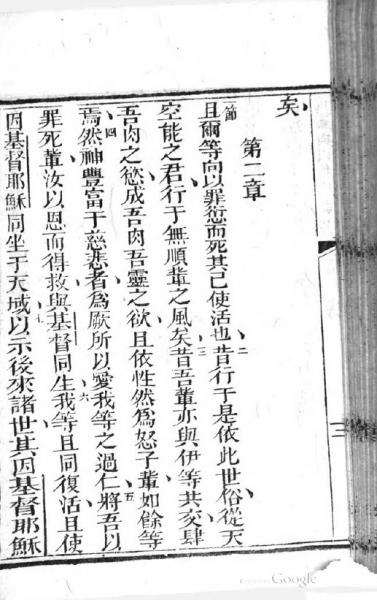 矣
第二章
節且爾等向以罪愆而死其已使活也二昔行于是依此世俗從天
空能之君行于無順輩之風矣三昔吾輩亦與伊等共交肆
吾肉之慾成吾肉吾靈之欲且依性然爲怒子輩如餘等
焉四然神豐富于慈悲者爲厥所以愛我等之過仁五將吾以
罪死輩汝以恩而得救與基督同生我等六且同復活且使
因基督耶穌同坐于天域七以示後來諸世其因基督耶穌
三
Google